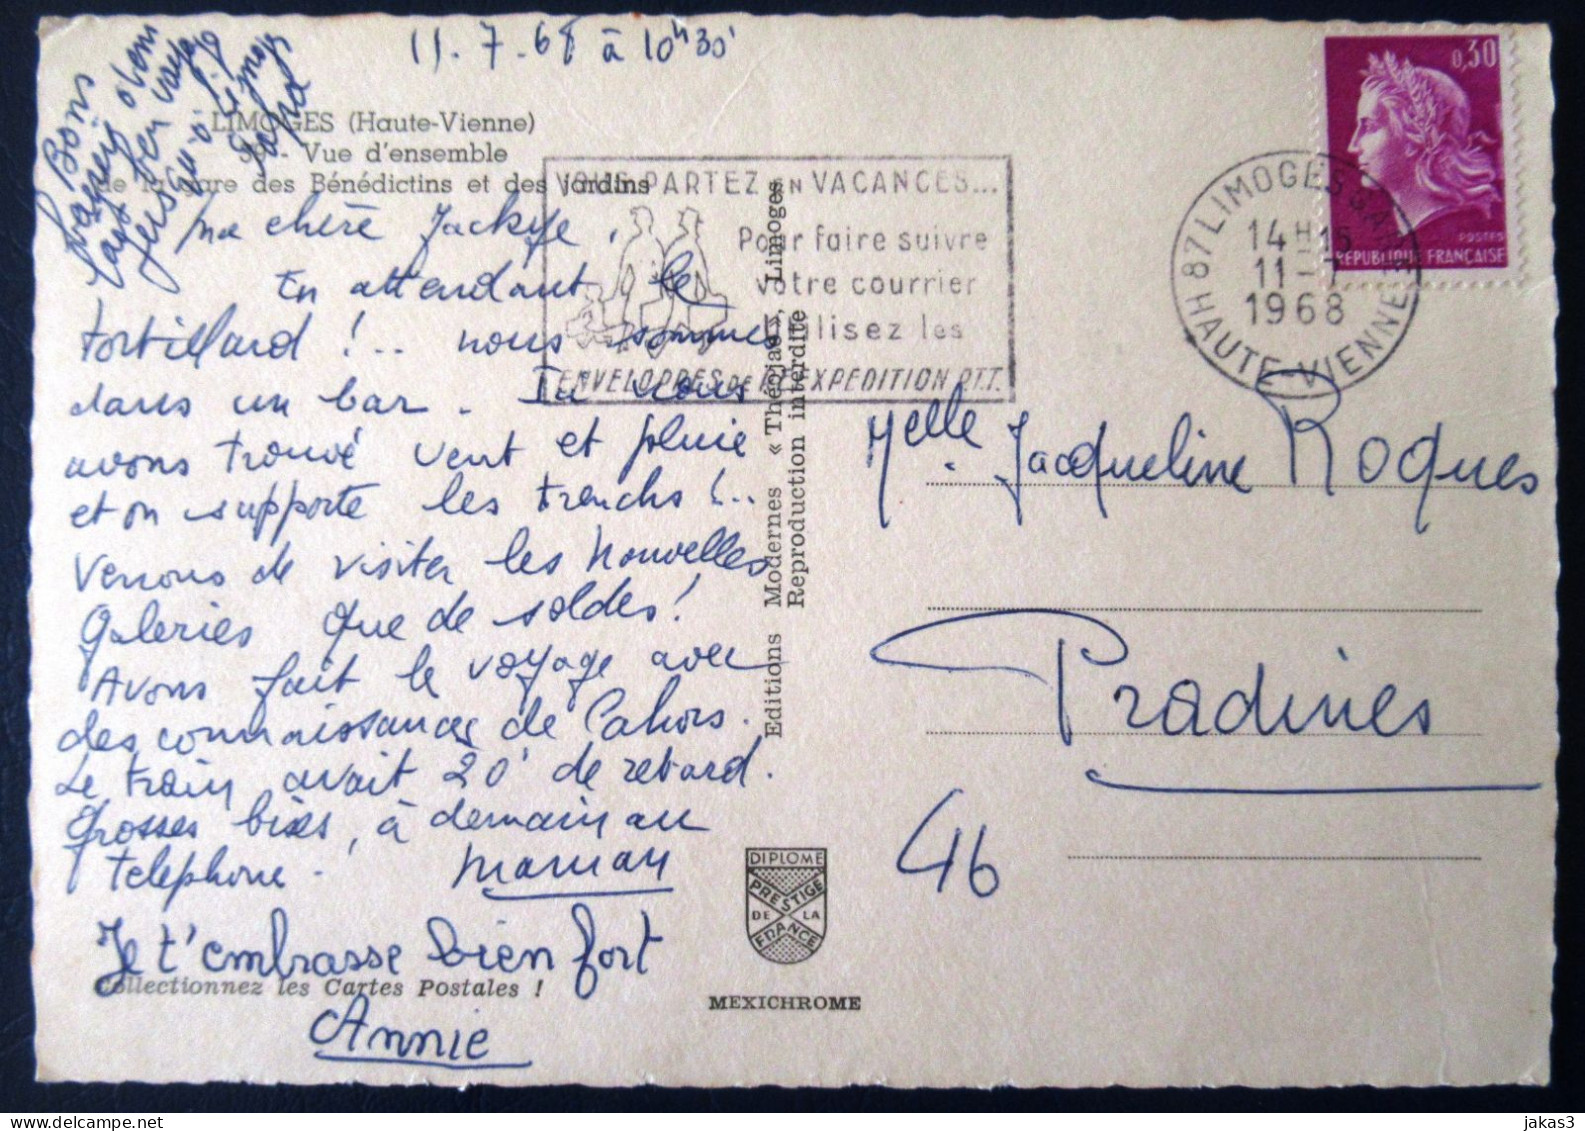 11.7.68 à 10h30'
Bons
baisers
LIMOGES (Haute-Vienne)
39 - Vue d'ensemble
de la gare des Bénédictins et des jardins
ma chère Jackye,
En attendant le
tortillard !.. nous sommes
dans un bar. Ici nous
avons trouvé vent et pluie
et on supporte les trenchs !..
Venons de visiter les Nouvelles
Galeries que de soldes!
Avons fait le voyage avec
des connaissances de Cahors.
Le train avait 20' de retard.
Grosses bises, à demain au
telephone.
maman
Je t'embrasse bien fort
Collectionnez les Cartes Postales !
Annie
VOUS PARTEZ EN VACANCES...
Pour faire suivre
votre courrier
utilisez les
ENVELOPPES DE RÉEXPEDITION P.T.T.
Editions Modernes « Théojac », Limoges
Reproduction interdite
DIPLOME
PRESTIGE
DE LA
FRANCE
MEXICHROME
87 LIMOGES GARE
14H15
11-7
1968
HAUTE-VIENNE
0,30
POSTES
REPUBLIQUE FRANÇAISE
Melle Jacqueline Roques
Pradines
46
jakas3